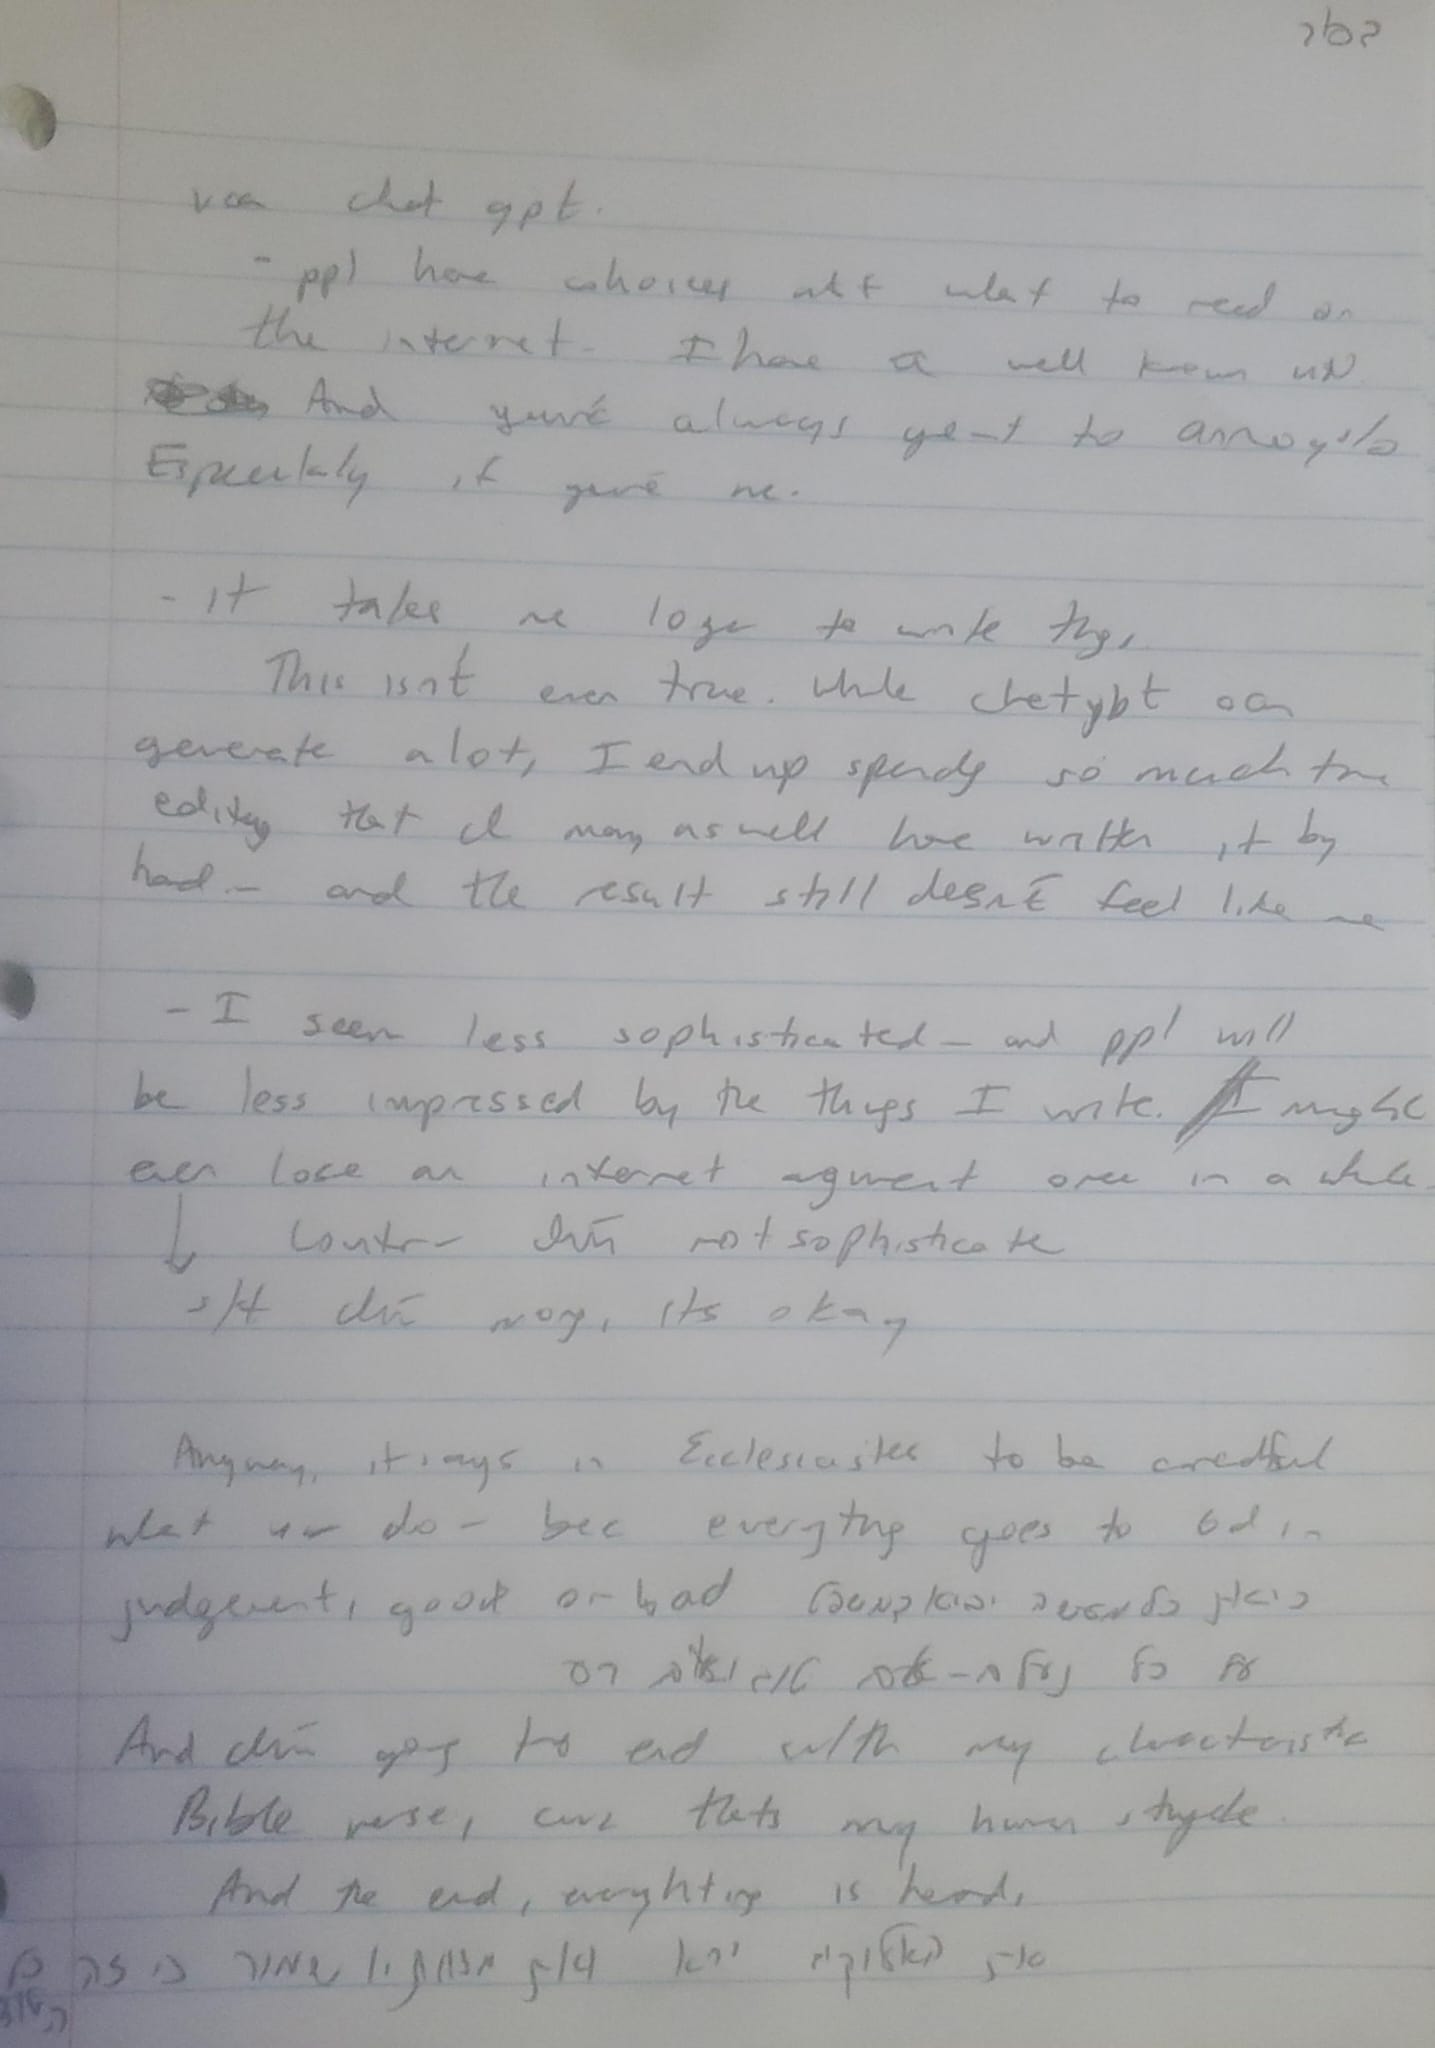 via chat gpt.
- ppl have choices abt what to read on
the internet - I have a well known un
And you're always going to annoy s/o
Especially if you're me.
- it takes me longer to write things
This isn't even true. While chatgpt can
generate a lot, I end up spending so much time
editing that I may as well have written it by
hand - and the result still doesn't feel like me
- I seem less sophisticated - and ppl will
be less impressed by the things I write. I might
even lose an internet argument once in a while.
Counter - I'm not sophisticate
s/t I'm wrong, its okay
Anyway, it says in Ecclesiastes to be careful
what you do - bec everything goes to Gd in
judgement, good or bad כי את כל מעשה יביא במשפט
על כל נעלם - אם טוב ואם רע
And I'm going to end with my characteristic
Bible verse, cuz thats my human style.
And the end, everything is heard,
את האלוקים ירא ואת מצותיו שמור כי זה כל
האדם